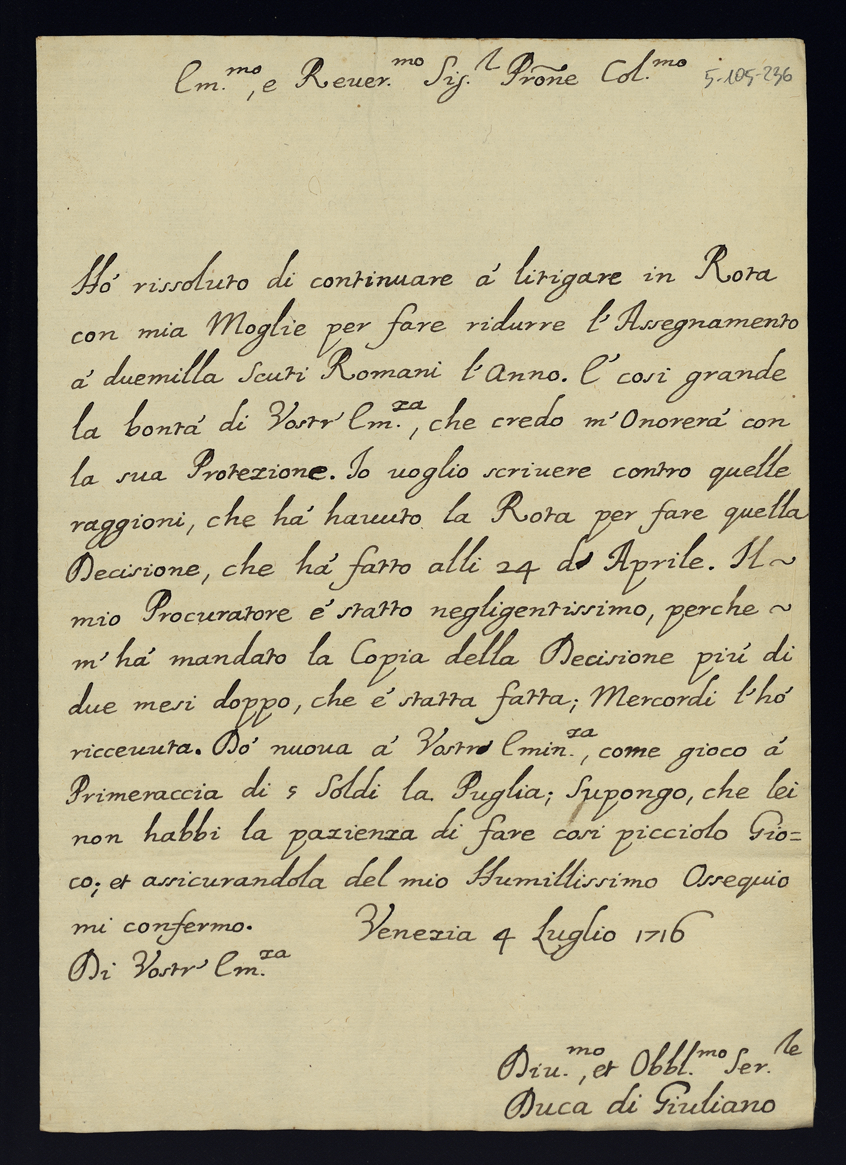 Em.mo, e Reuer.mo Sig.r Prõne Col.mo 5-105-236
Hó rissoluto di continuare á litigare in Rota
con mia Moglie per fare ridurre l'Assegnamento
á duemilla Scuti Romani l'Anno. E' cosi grande
la bontá di Vostr' Em.za, che credo m'Onorerá con
la sua Protezione. Io uoglio scriuere contro quelle
raggioni, che há hauuto la Rota per fare quella
Decisione, che há fatto alli 24 d' Aprile. Il ~
mio Procuratore é statto negligentissimo, perche ~
m'há mandato la Copia della Decisione piú di
due mesi doppo, che é statta fatta; Mercordi l'hó
ricceuuta. Dó nuoua á Vostra Emin.za, come gioco á
Primeraccia di 5 Soldi la Puglia; Supongo, che lei
non habbi la pazienza di fare cosi picciolo Gio=
co; et assicurandola del mio Humillissimo Ossequio
mi confermo. Venezia 4 Luglio 1716
Di Vostr' Em.za
Diu.mo, et Obbl.mo Ser.le
Duca di Giuliano